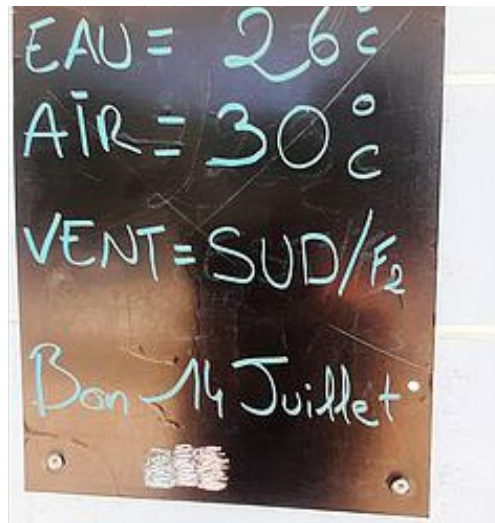 EAU = 26°C
AÏR = 30°C
VENT = SUD/F2
Bon 14 Juillet